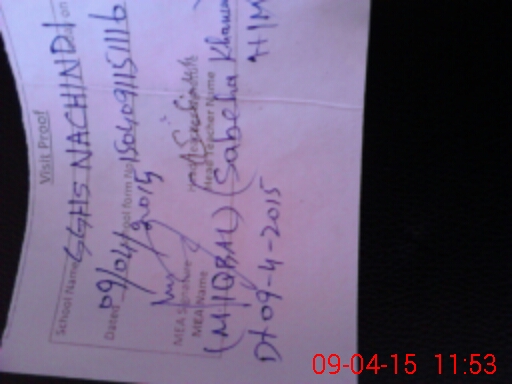 Visit Proof
School Name GGHS NACHINDI on
Dated 09/04/2015 School form No 1504091151116
MEA Signature
MEA Name Head Teacher Name
(M IQBAL) (Sabeha
Dt 09-4-2015 H/M
09-04-15 11:53